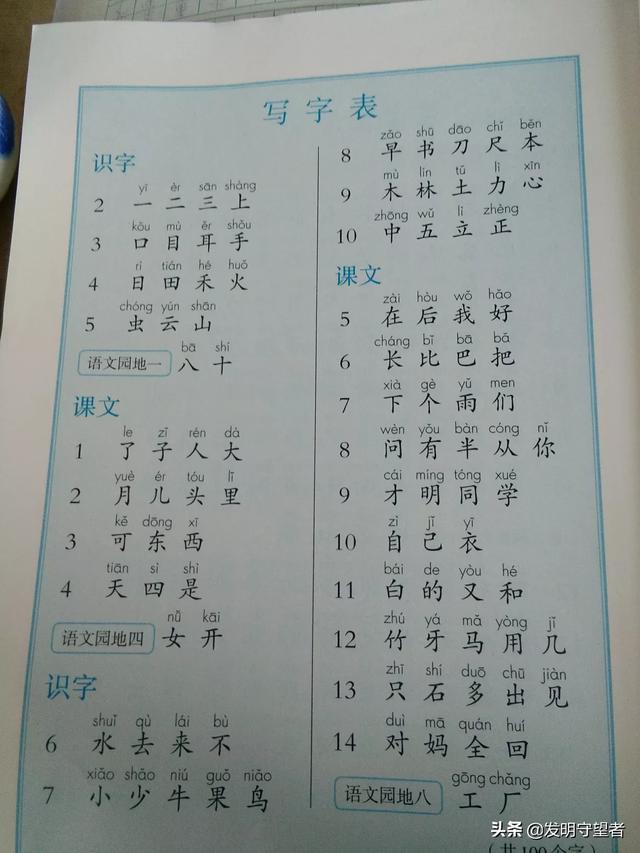 写字表
识字
yī èr sān shàng
2 一 二 三 上
kǒu mù ěr shǒu
3 口 目 耳 手
rì tián hé huǒ
4 日 田 禾 火
chóng yún shān
5 虫 云 山
bā shí
语文园地一 八 十
课文
le zǐ rén dà
1 了 子 人 大
yuè ér tóu lǐ
2 月 儿 头 里
kě dōng xī
3 可 东 西
tiān sì shì
4 天 四 是
nǚ kāi
语文园地四 女 开
识字
shuǐ qù lái bù
6 水 去 来 不
xiǎo shǎo niú guǒ niǎo
7 小 少 牛 果 鸟
zǎo shū dāo chǐ běn
8 早 书 刀 尺 本
mù lín tǔ lì xīn
9 木 林 土 力 心
zhōng wǔ lì zhèng
10 中 五 立 正
课文
zài hòu wǒ hǎo
5 在 后 我 好
cháng bǐ bā bǎ
6 长 比 巴 把
xià gè yǔ men
7 下 个 雨 们
wèn yǒu bàn cóng nǐ
8 问 有 半 从 你
cái míng tóng xué
9 才 明 同 学
zì jǐ yī
10 自 己 衣
bái de yòu hé
11 白 的 又 和
zhú yá mǎ yòng jǐ
12 竹 牙 马 用 几
zhǐ shí duō chū jiàn
13 只 石 多 出 见
duì mā quán huí
14 对 妈 全 回
gōng chǎng
语文园地八 工 厂
(共100个字)
头条 @发明守望者